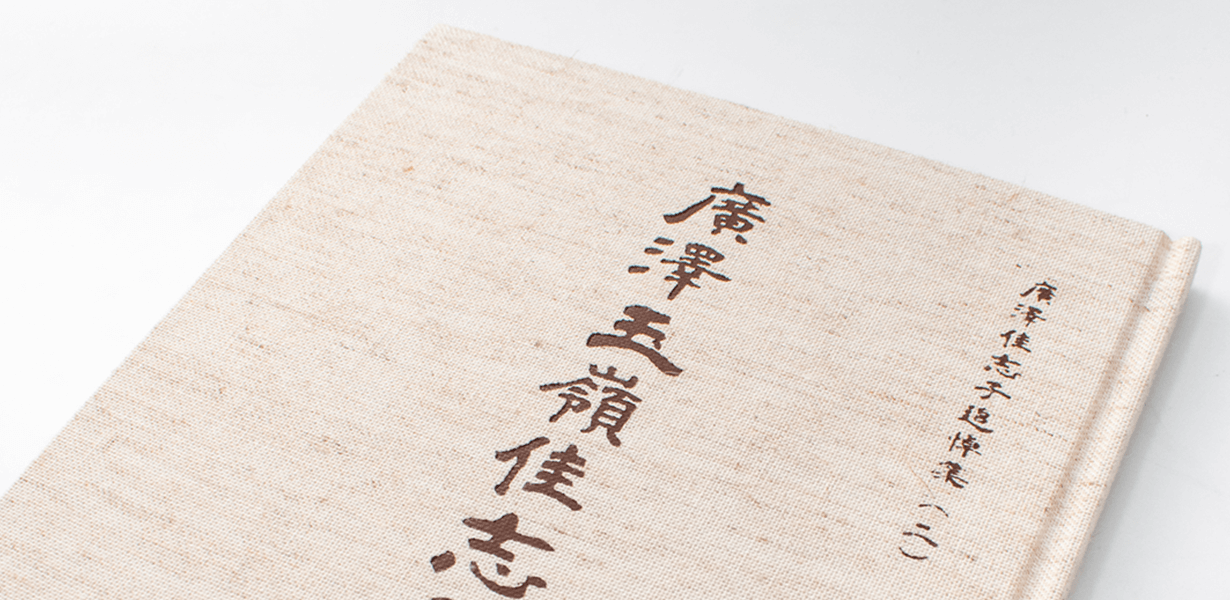 廣澤佳志子追悼集(二)
廣澤玉嶺佳志